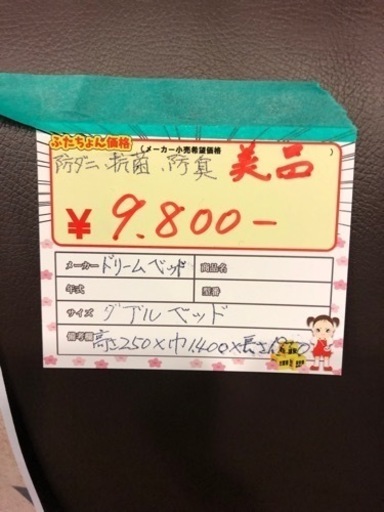 ふたちょん価格
(メーカー小売希望価格 )
防ダニ、抗菌、防臭 美品
¥ 9.800-
メーカー ドリームベッド 商品名
年式 型番
サイズ ダブルベッド
備考欄 高さ250×巾1.400×長さ